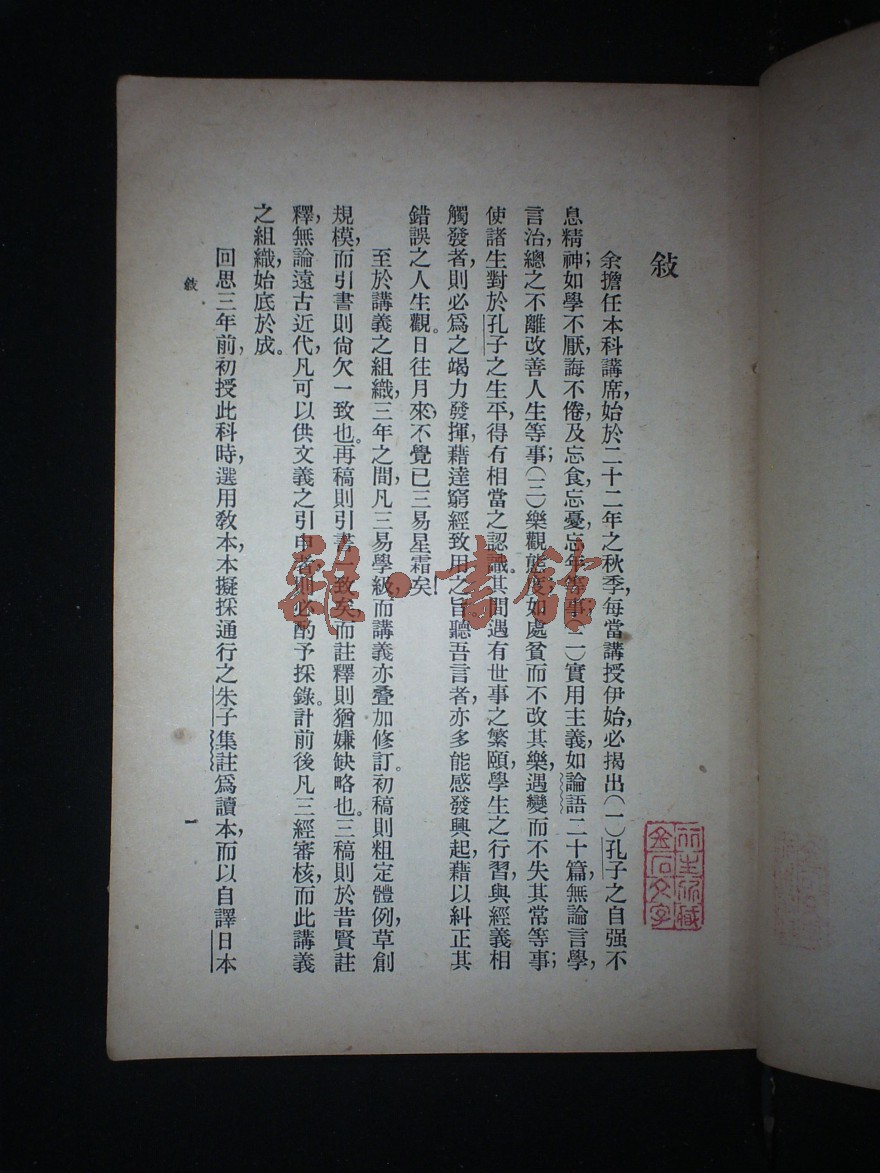 敍
余擔任本科講席，始於二十二年之秋季，每當講授伊始，必揭出（一）孔子之自强不
息精神；如學不厭，誨不倦，及忘食，忘憂，忘年等事；（二）實用主義，如論語二十篇，無論言學，
言治，總之不離改善人生等事；（三）樂觀態度，如處貧而不改其樂，遇變而不失其常等事；
使諸生對於孔子之生平，得有相當之認識。其間遇有世事之繁頤，學生之行習，與經義相
觸發者，則必爲之竭力發揮，藉達窮經致用之旨，聽吾言者，亦多能感發興起，藉以糾正其
錯誤之人生觀。日往月來，不覺已三易星霜矣！
至於講義之組織，三年之間，凡三易學級，而講義亦叠加修訂。初稿則粗定體例，草創
規模，而引書則尙欠一致也。再稿則引書一致矣，而註釋則猶嫌缺略也。三稿則於昔賢註
釋，無論遠古近代，凡可以供文義之引申者，則必酌予採錄。計前後凡三經審核，而此講義
之組織，始底於成。
回思三年前，初授此科時，選用敎本，本擬採通行之朱子集註爲讀本，而以自譯日本
敍
一
雅·書館
金石文字